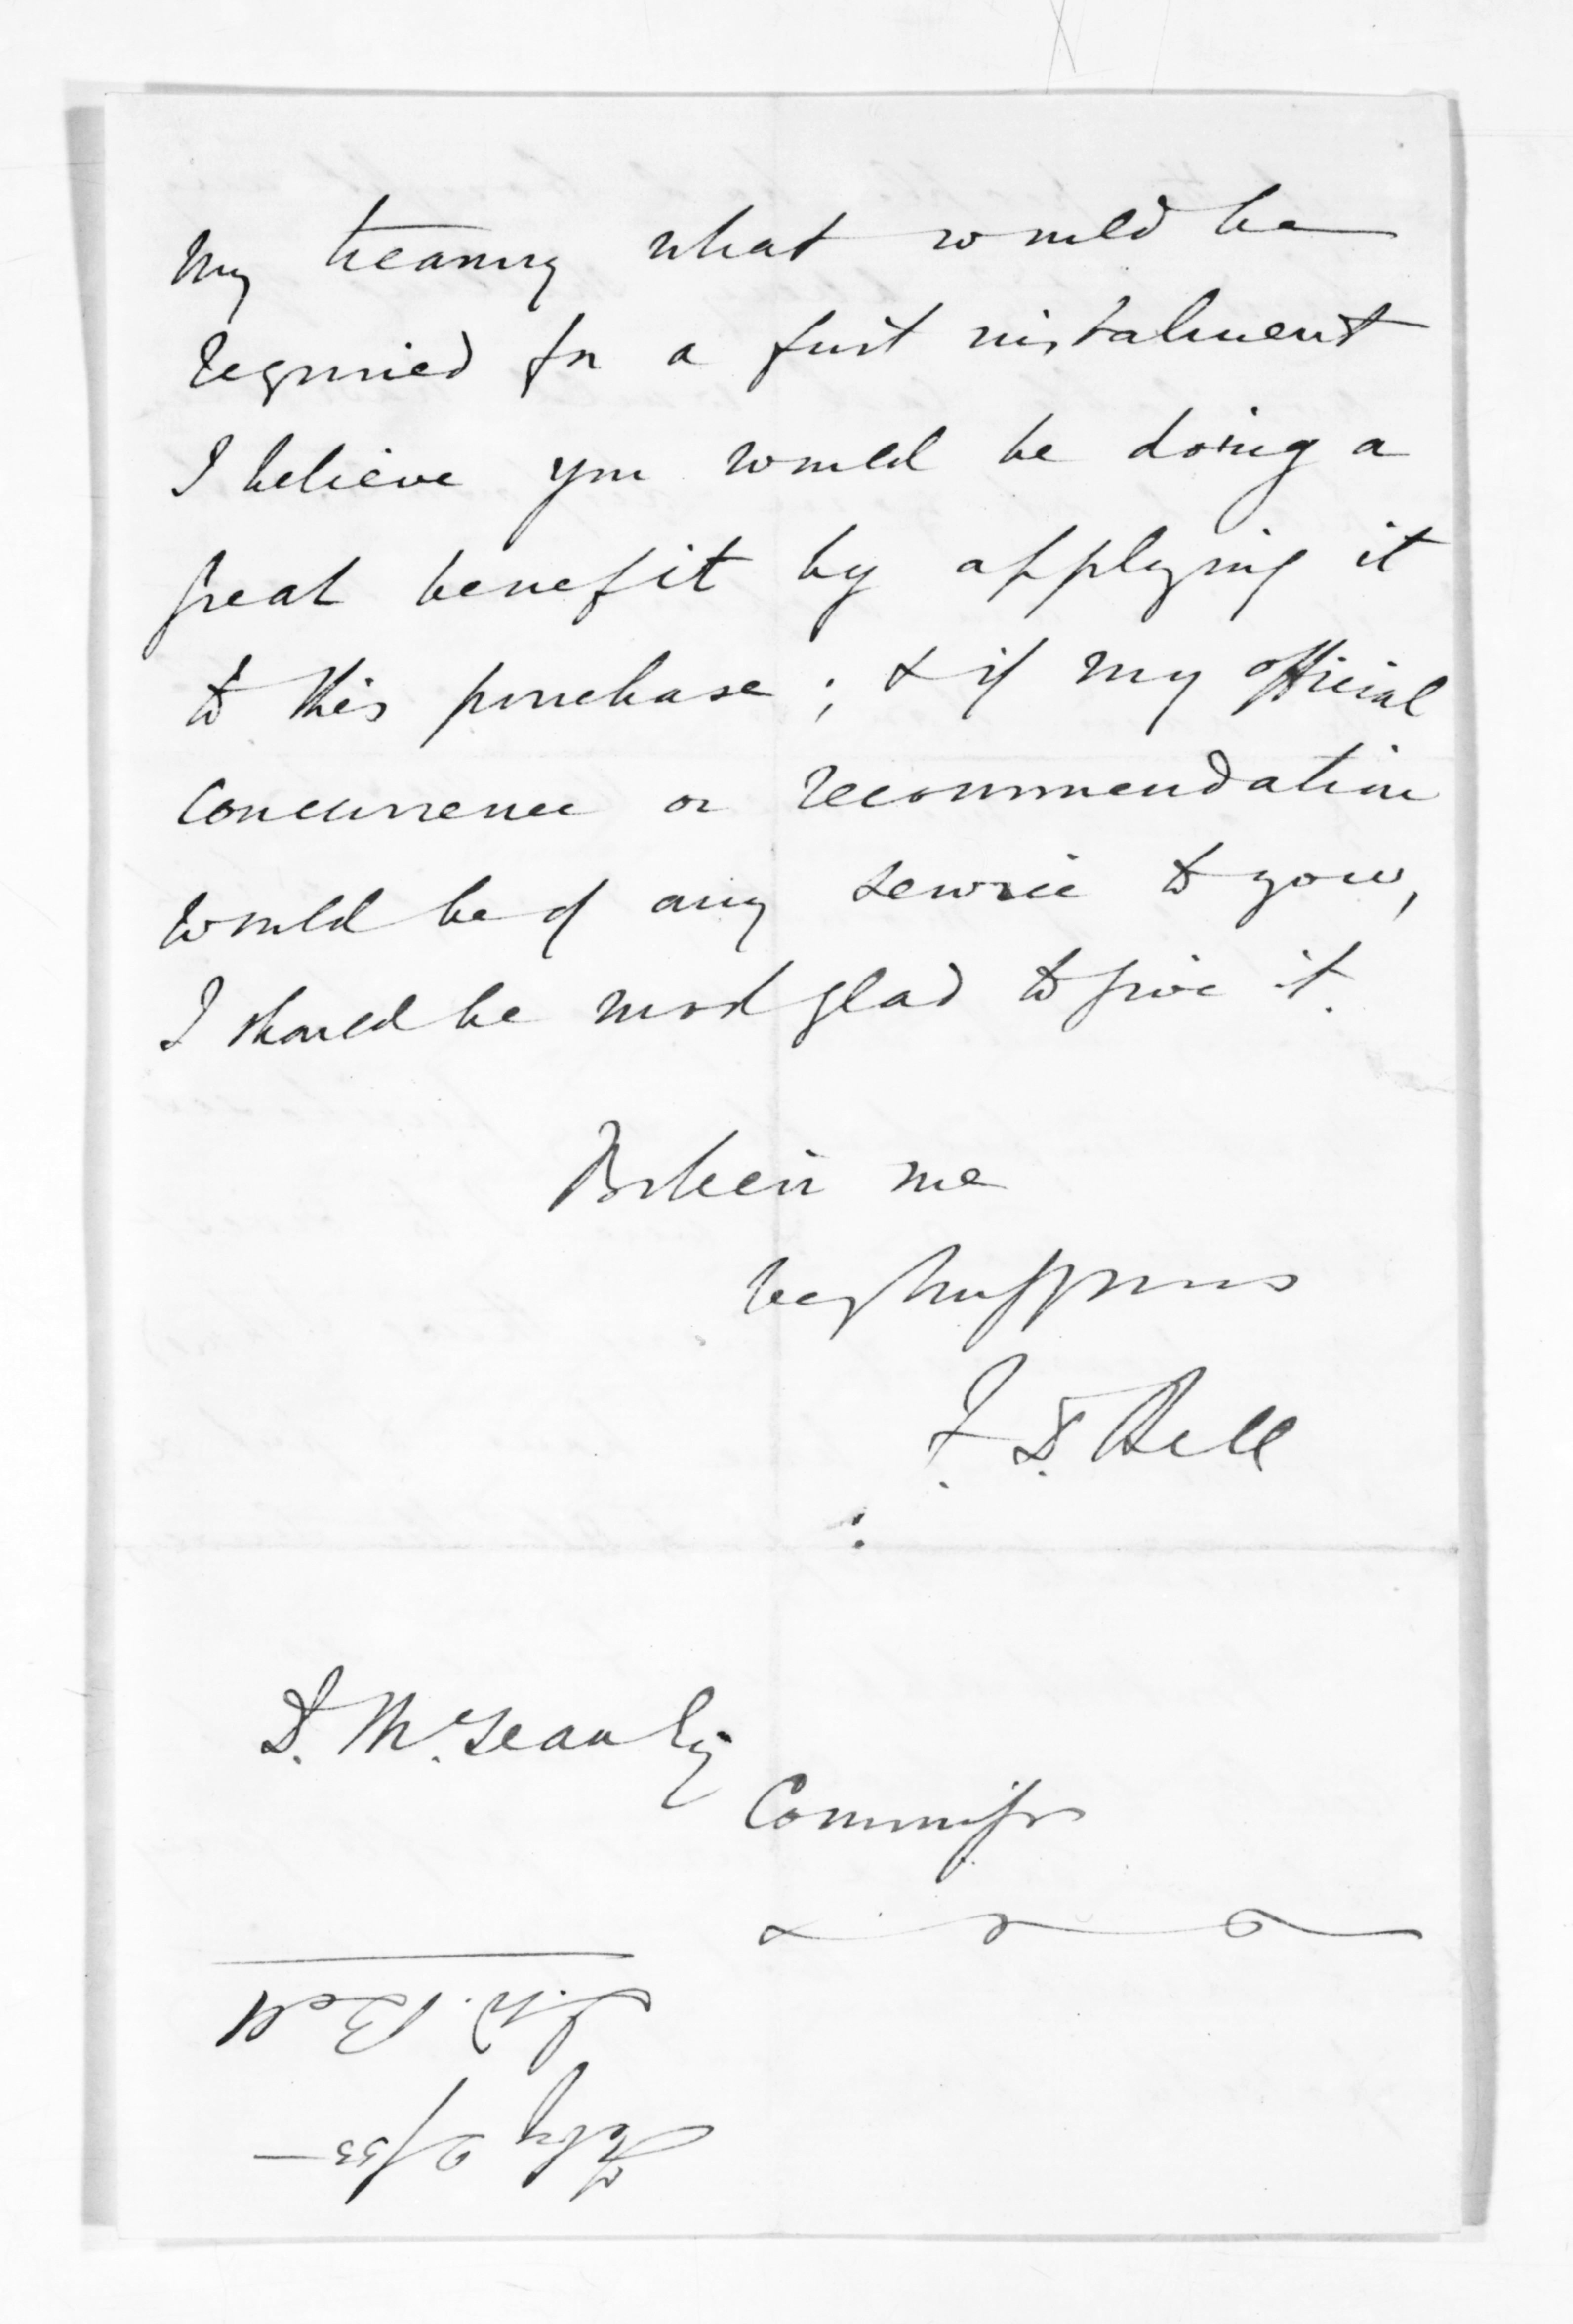 my treasury what would be
required for a first instalment
I believe you would be doing a
great benefit by applying it
to this purchase; & if my official
concurrence or recommendation
would be of any service to you,
I should be most glad to give it.
Believe me
very truly yours
F. D. Bell
D. McLean Esq
Commissr
F. D. Bell
Feby 2/53